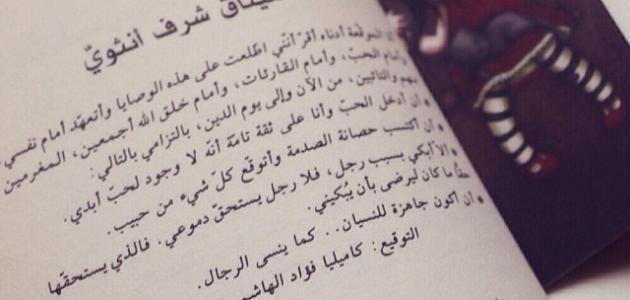 ميثاق شرف أنثويّ
الموقّعة أدناه أقرّ أنّني اطّلعت على هذه الوصايا وأتعهّد أمام نفسي
وأمام الحبّ، وأمام القارئات، وأمام خلق الله أجمعين، المغرمين
منهم والتائبين، من الآن وإلى يوم الدين، بالتزامي بالتالي:
• أن أدخل الحبّ وأنا على ثقة تامّة أنّه لا وجود لحبّ أبدي.
• أن أكتسب حصانة الصدمة وأتوقّع كلّ شيء من حبيب.
• ألاّ أبكي بسبب رجل، فلا رجل يستحقّ دموعي. فالذي يستحقّها
حقّاً ما كان ليرضى بأن يُبكيني.
• ان أكون جاهزة للنسيان.. كما ينسى الرجال.
التوقيع: كاميليا فؤاد الهاشم